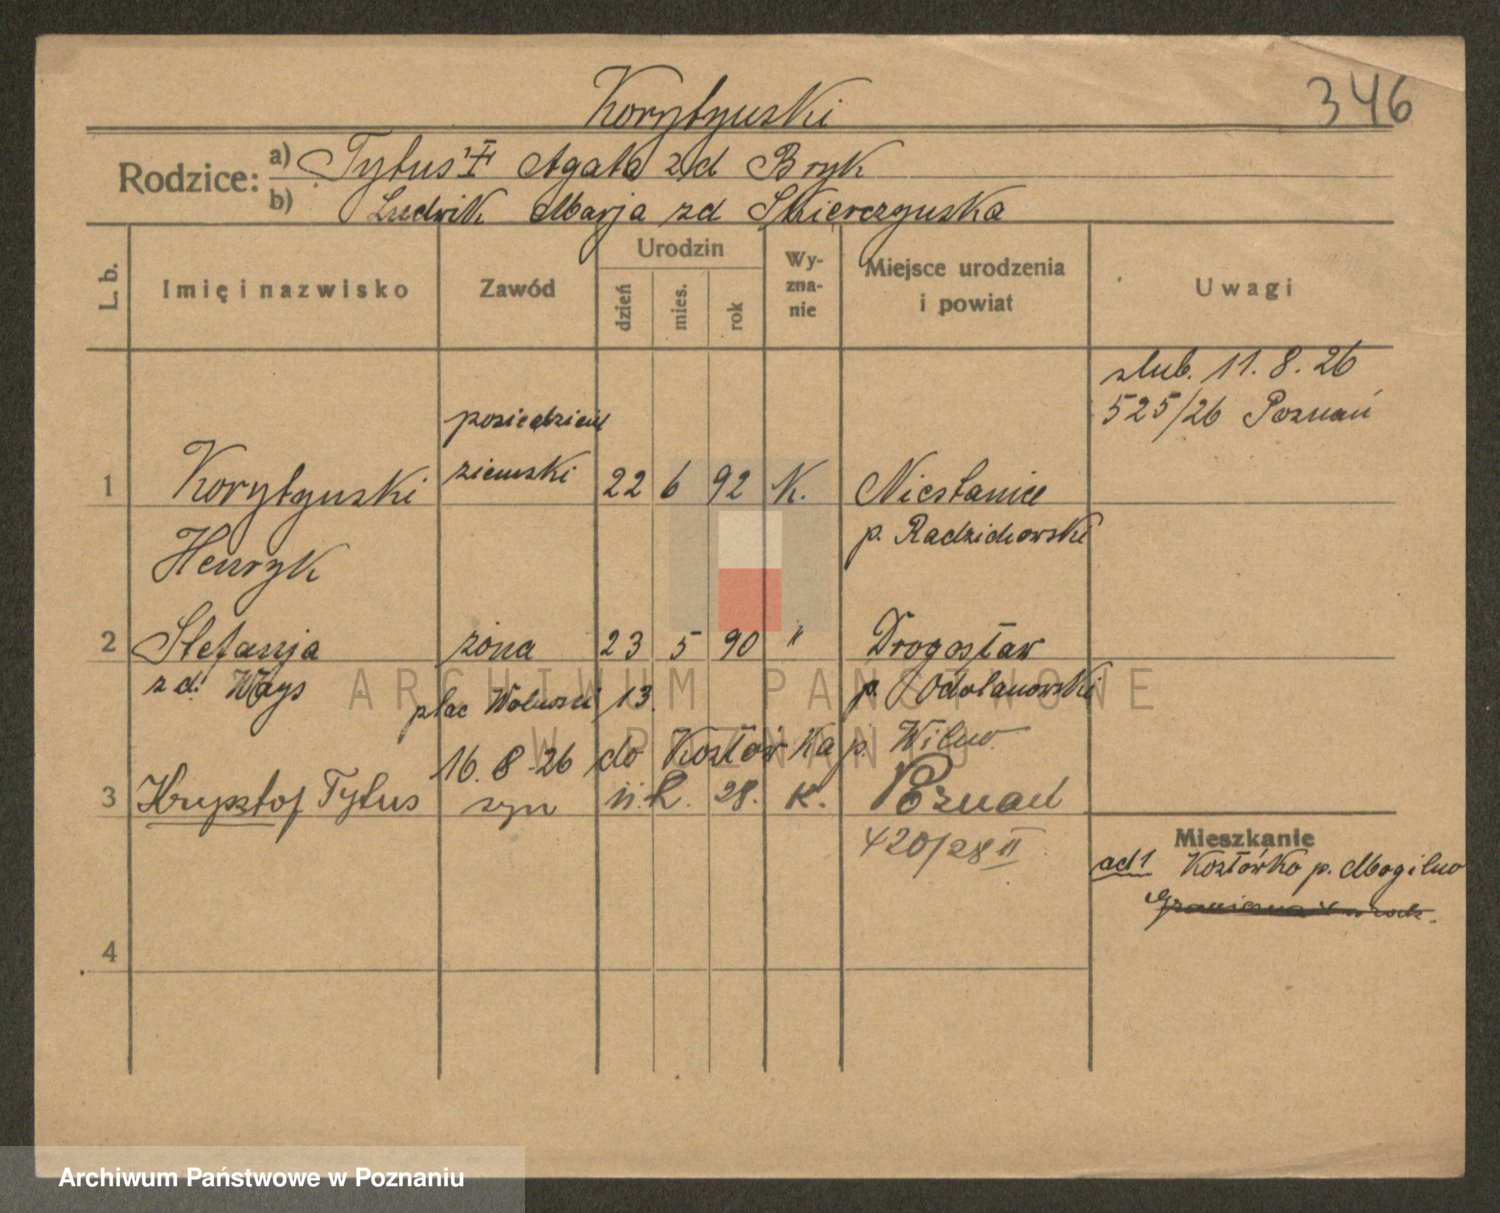 346
Korytyński
Rodzice: a) Tytus Agata zd Bryk
b) Ludwik Marja zd Skierczyńska
L. b. Imię i nazwisko Zawód Urodzin dzień mies. rok Wy-zna-nie Miejsce urodzenia i powiat Uwagi
ślub. 11. 8. 26
525/26 Poznań
posiedziciel
1 Korytyński ziemski 22 6 92 K. Niestanice
Henryk p. Radziechowski
2 Stefanja żona 23 5 90 " Drogosław
zd. Ways plac Wolności 13. p. Odolanowski
16. 8. 26 do Kozłówka p.
3 Krzysztof Tytus syn 11. 2. 28. K. Poznań
420/28 II
Mieszkanie
ad 1 Kozłówko p. Mogilno
4
ARCHIWUM PAŃSTWOWE
W POZNANIU
Archiwum Państwowe w Poznaniu